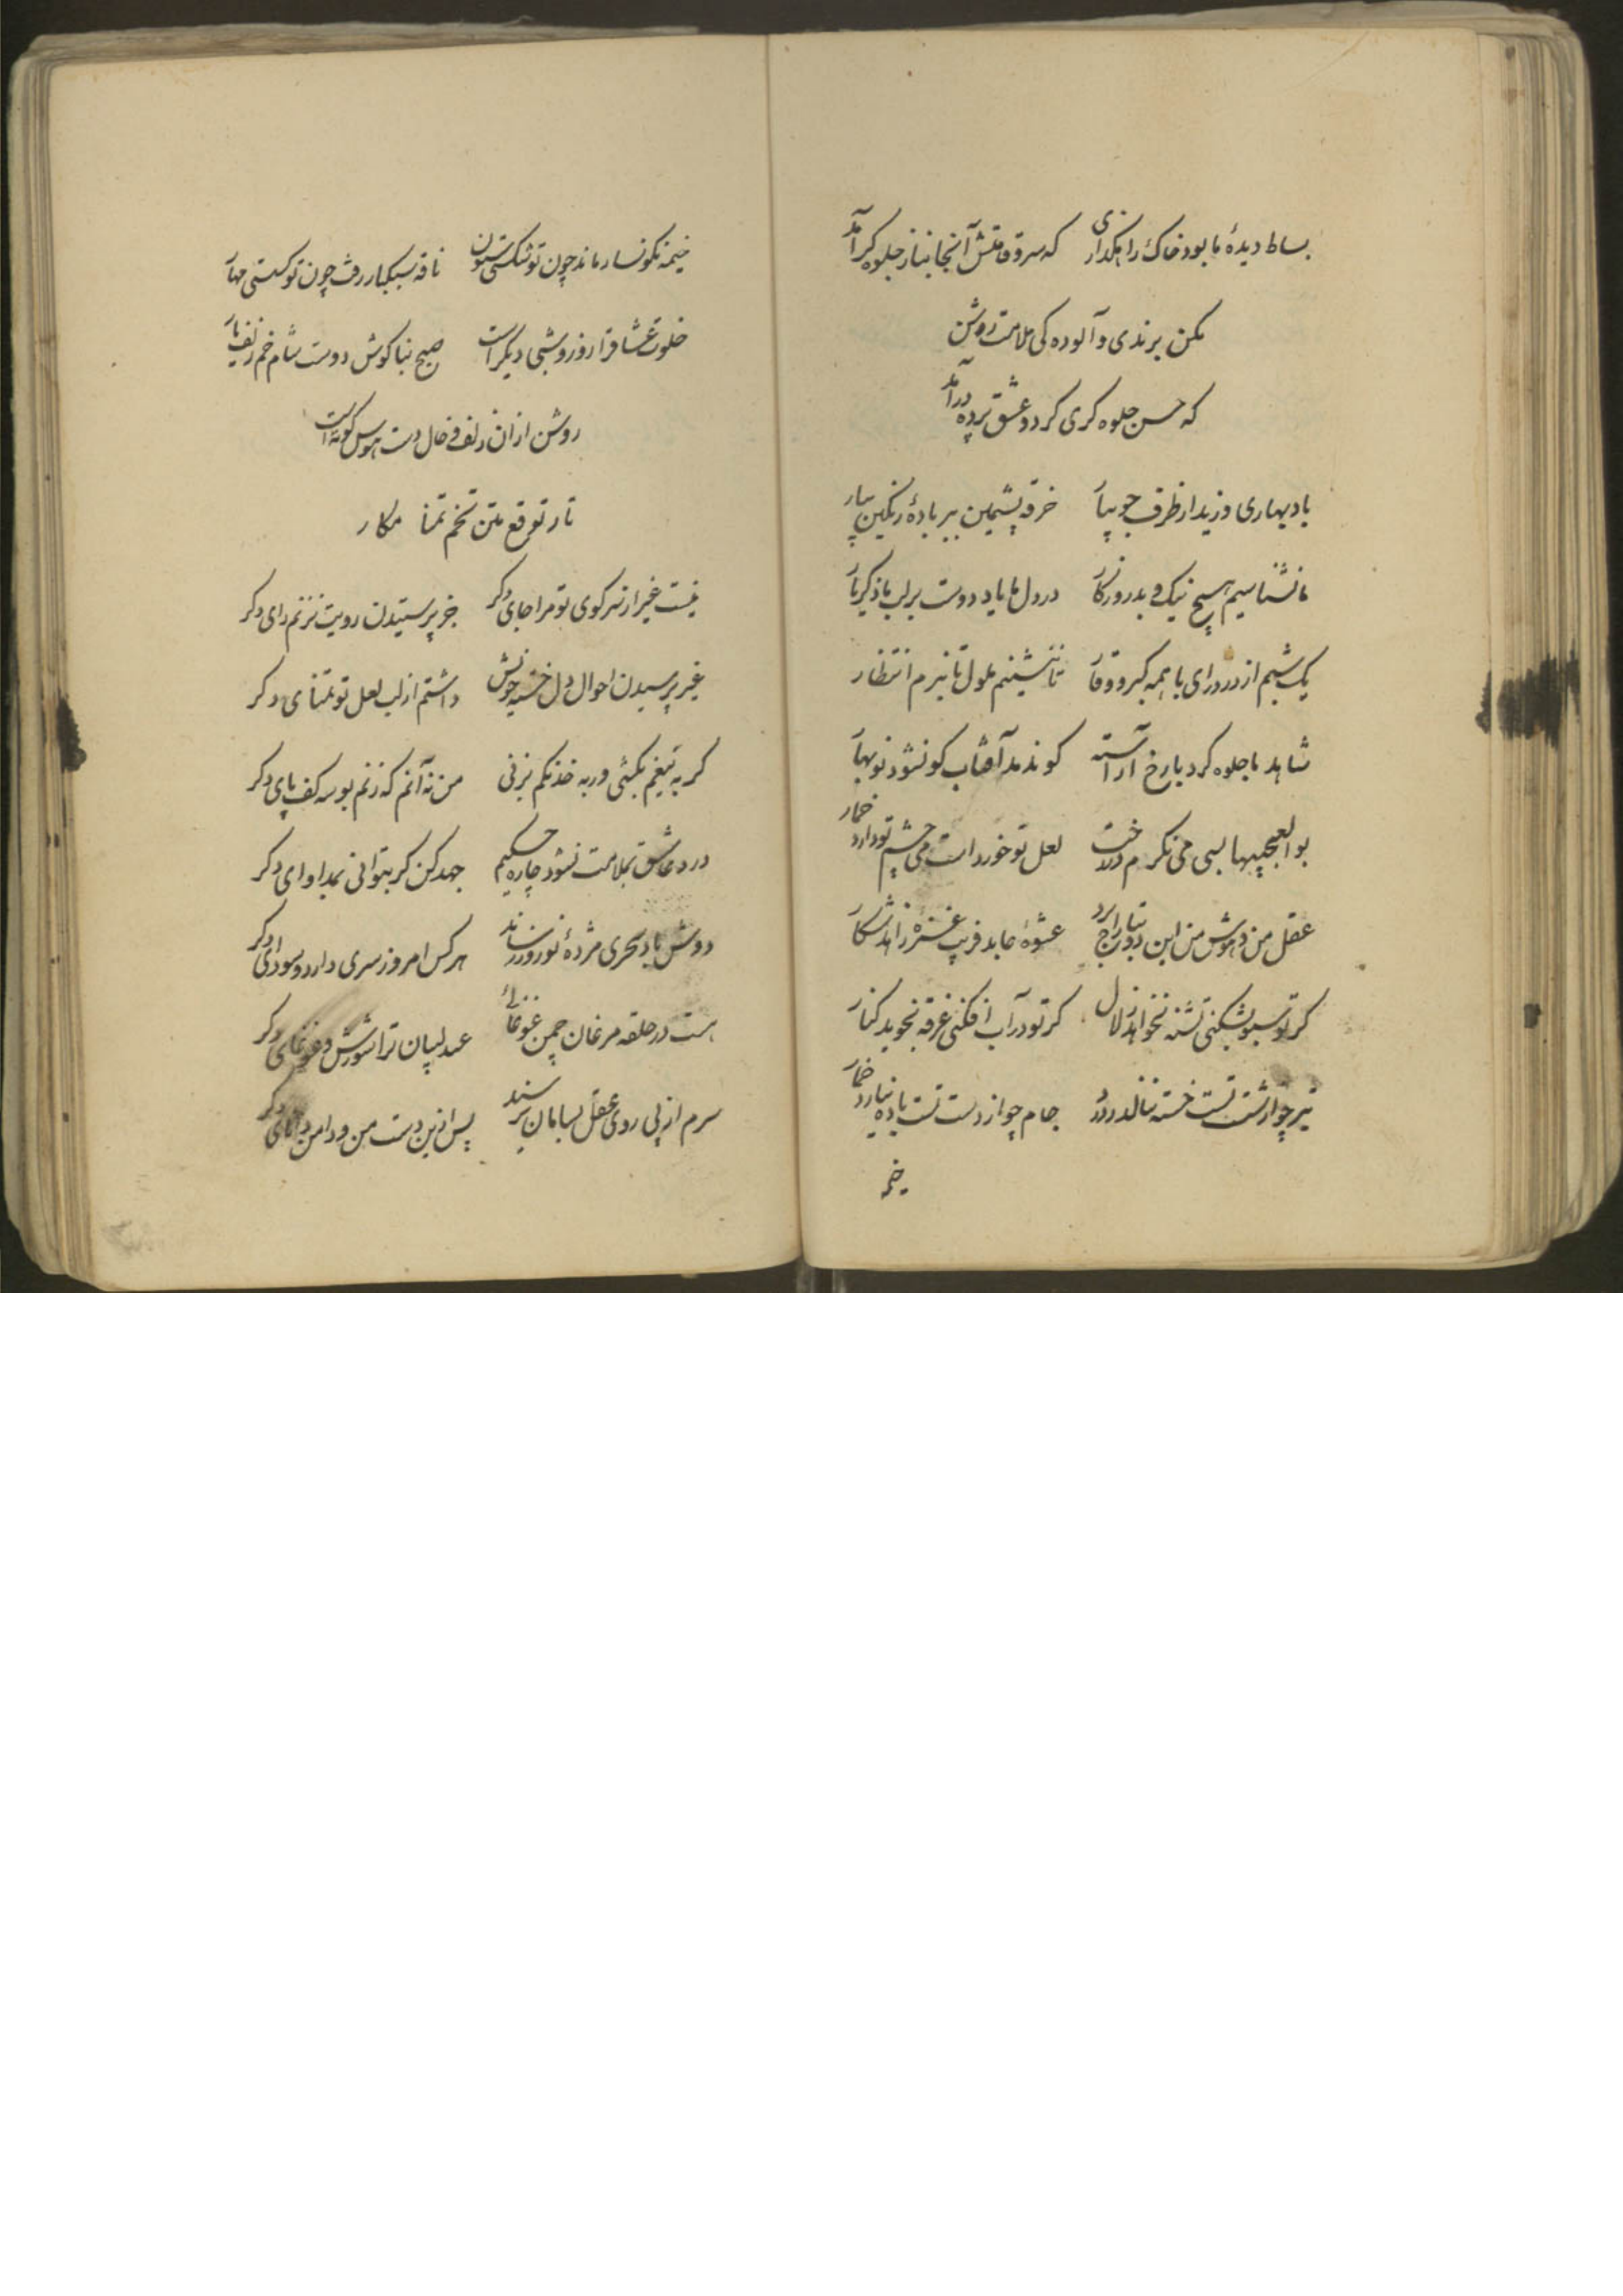 بساط دیدهٔ ما بود خاک را مگذاری که سرو قامتش آنجا بناز جلوه‌گر آمد
مکن برندی و آلوده‌کی ملامت روشن
که حسن جلوه کری کرد و عشق پرده درآمد
باد بهاری وزید از طرف جویبار خرقه پشمین ببر بادهٔ رنگین بیار
ما نشناسیم هیچ نیک و بد روزگار در دل ما یاد دوست بر لب ما ذکر یار
یک شبم از در درای با همه کبر و وقار تا ننشینم ملول تا نبرم انتظار
شاهد ما جلوه کرد با رخ آراسته کو ندمد آفتاب کو نشود نوبهار
بوالعجبیها بسی می نکرم در رخت لعل تو خورداست می چشم تو دارد خمار
عقل من و هوش من این دو بتاراج برد عشوهٔ عابد فریب غمزهٔ زاهد شکار
کر تو سبو بشکنی تشنه نخواهد زلال کر تو در آب افکنی غرقه نجوید کنار
تیر چو از شست تست خسته ننالد ز درد جام چو از دست تست باده نیارد خمار
خیمه
خیمه نکونسار ماند چون تو شکستی ستون ناقه سبکبار رفت چون تو کسستی مهار
خلوت عشاق را روز و شبی دیگر است صبح بناکوش دوست شام خم زلف یار
روشن از ان زلف و خال دست هوس کوته است
تار توقع متن تخم تمنا مکار
نیست غیر از سر کوی تو مرا جای دکر جز پرستیدن رویت نزنم رای دکر
غیر پرسیدن احوال دل خسته خویش داشتم از لب لعل تو تمنای دکر
کر به تیغم بکشی ور به خدنکم بزنی من نه آنم که زنم بوسه کف پای دکر
درد عاشق بملامت نشود چاره حکیم جهد کن کر بتوانی بمداوای دکر
دوش باد سحری مژدهٔ نوروز رساند هر کس امروز سری دارد و سودای دکر
هست در حلقه مرغان چمن غوغائی عندلیبان ترا شورش و غوغای دکر
سرم از پی روی عقل بسامان نرسید پس ازین دست من و دامن دانای دکر